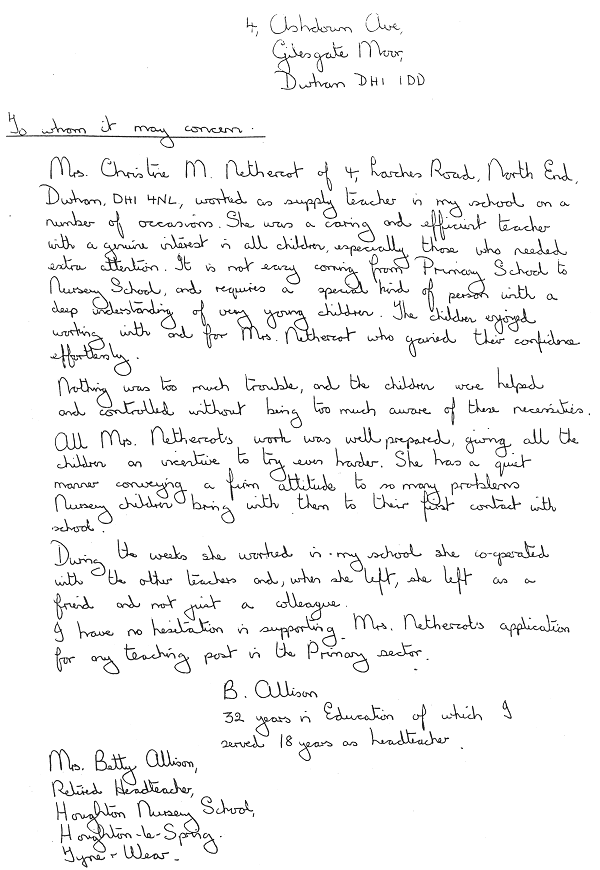 4, Ashdown Ave,
Gilesgate Moor,
Durham DH1 1DD
To whom it may concern.
Mrs. Christine M. Nethercot of 4, Larches Road, North End,
Durham, DH1 4NL, worked as supply teacher in my school on a
number of occasions. She was a caring and efficient teacher
with a genuine interest in all children, especially those who needed
extra attention. It is not easy coming from Primary School to
Nursery School, and requires a special kind of person with a
deep understanding of very young children. The children enjoyed
working with and for Mrs. Nethercot who gained their confidence
effortlessly.
Nothing was too much trouble, and the children were helped
and controlled without being too much aware of these necessities.
All Mrs. Nethercot's work was well prepared, giving all the
children an incentive to try even harder. She has a quiet
manner conveying a firm attitude to so many problems
Nursery children bring with them to their first contact with
school.
During the weeks she worked in my school she co-operated
with the other teachers and, when she left, she left as a
friend and not just a colleague.
I have no hesitation in supporting Mrs. Nethercot's application
for any teaching post in the Primary sector.
B. Allison
32 years in Education of which I
served 18 years as headteacher.
Mrs. Betty Allison,
Retired Headteacher,
Houghton Nursery School,
Houghton-le-Spring.
Tyne & Wear.